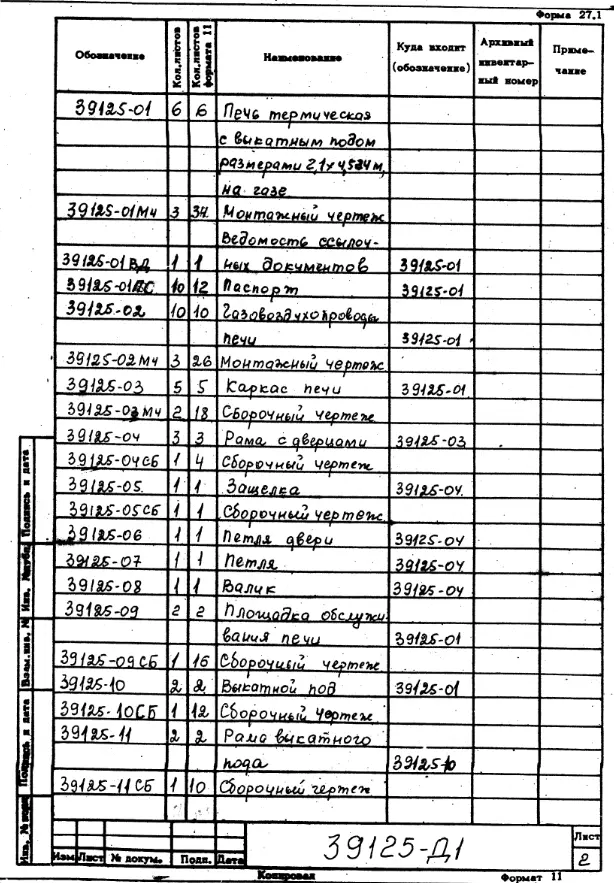 Форма 27.1
Обозначение Кол.листов Кол.листов формата 11 Наименование Куда входит (обозначение) Архивный инвентарный номер Примечание
39125-01 6 6 Печь термическая
с выкатным подом
размерами
на газе
39125-01МЧ 3 34 Монтажный чертеж
Ведомость ссылоч-
39125-01ВД 1 1 ных документов 39125-01
39125-01ПС 10 12 Паспорт 39125-01
39125-02 10 10 Газовоздухопроводы
печи 39125-01
39125-02МЧ 3 26 Монтажный чертеж
39125-03 5 5 Каркас печи 39125-01
39125-03МЧ 2 18 Сборочный чертеж
39125-04 3 3 Рама с дверцами 39125-03
39125-04СБ 1 4 Сборочный чертеж
39125-05. 1 1 Защелка 39125-04.
39125-05СБ 1 1 Сборочный чертеж
39125-06 1 1 Петля двери 39125-04
39125-07 1 1 Петля 39125-04
39125-08 1 1 Валик 39125-04
39125-09 2 2 Площадка обслужи-
вания печи 39125-01
39125-09СБ 1 16 Сборочный чертеж
39125-10 2 2 Выкатной под 39125-01
39125-10СБ 1 12 Сборочный чертеж
39125-11 2 2 Рама выкатного
пода 39125-10
39125-11СБ 1 10 Сборочный чертеж
Подпись и дата
Взам.инв. №
Подпись и дата
39125-Д1
Лист
2
Изм Лист № докум. Подп. Дата
Копировал Формат 11